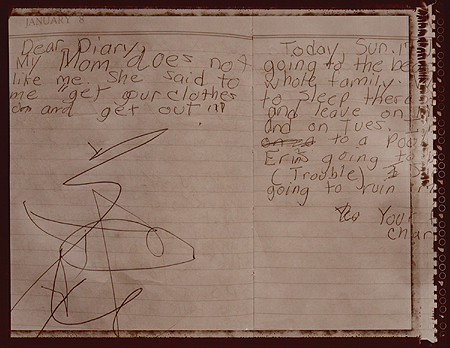 JANUARY 8
Dear Diary,
My Mom does not
like me. She said to
me "get your clothes
on and get out"!!!
Today Sun. I'
going to the be
whole family.
to sleep there
and leave on
and on Tues.
to a Poo
Erins going to
(Trouble)
going to ruin
Your
Char